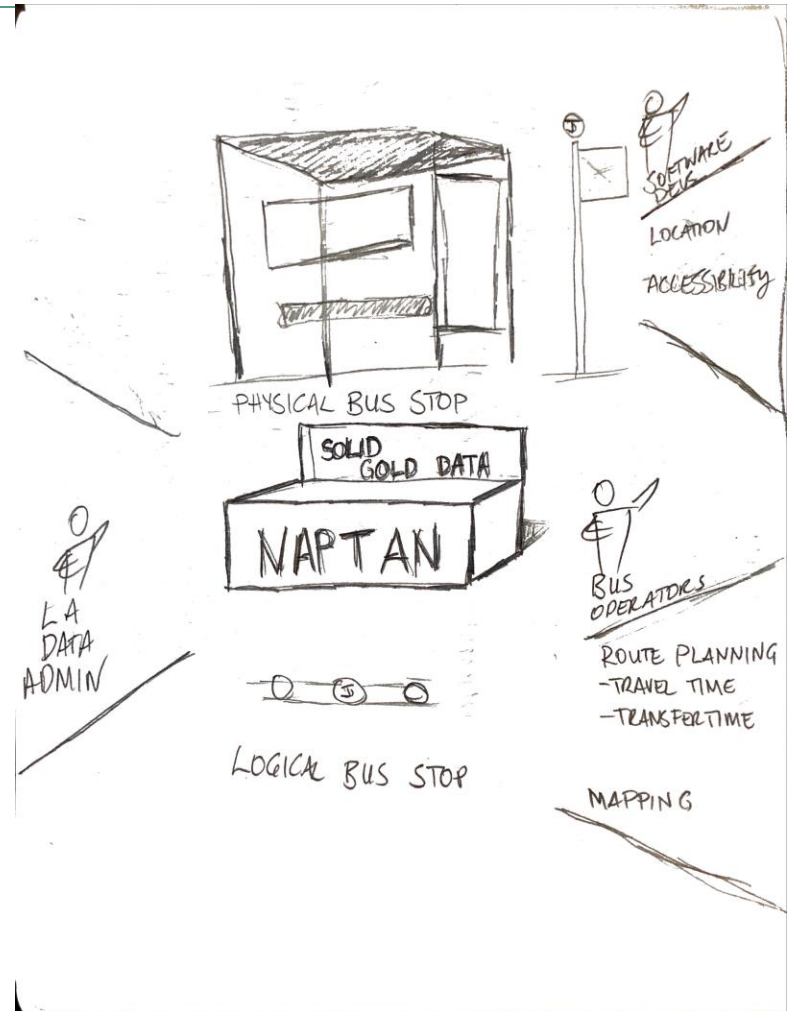 SOFTWARE
DEVS
LOCATION
ACCESSIBILITY
PHYSICAL BUS STOP
SOLID
GOLD DATA
NAPTAN
LA
DATA
ADMIN
BUS
OPERATORS
ROUTE PLANNING
-TRAVEL TIME
-TRANSFER TIME
LOGICAL BUS STOP
MAPPING